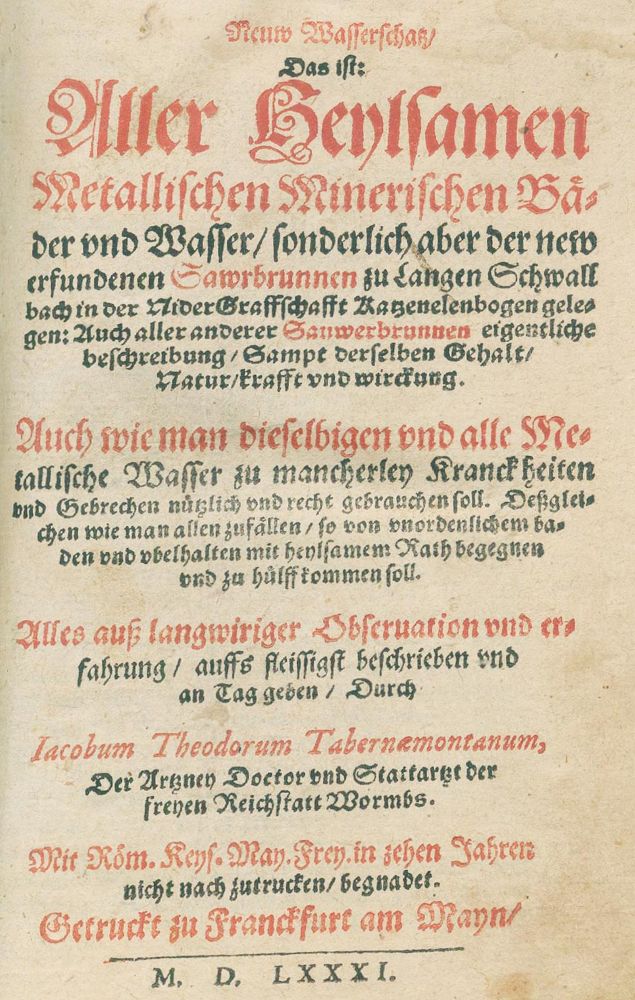 Neuw Wasserschatz/
Das ist:
Aller Heylsamen
Metallischen Minerischen Bä-
der vnd Wasser/ sonderlich aber der new
erfundenen Sawrbrunnen zu Langen Schwall
bach in der NiderGraffschafft Katzenelenbogen gele-
gen: Auch aller anderer Sauwerbrunnen eigentliche
beschreibung/ Sampt derselben Gehalt/
Natur/ krafft vnd wirckung.
Auch wie man dieselbigen vnd alle Me-
tallische Wasser zu mancherley Kranckheiten
vnd Gebrechen nützlich vnd recht gebrauchen soll. Deßglei-
chen wie man allen zufällen/ so von vnordenlichem ba-
den vnd vbelhalten mit heylsamem Rath begegnen
vnd zu hülff kommen soll.
Alles auß langwiriger Obseruation vnd er-
fahrung/ auffs fleissigst beschrieben vnd
an Tag geben/ Durch
Iacobum Theodorum Tabernæmontanum,
Der Artzney Doctor vnd Stattartzt der
freyen Reichstatt Wormbs.
Mit Röm. Keys. May. Frey. in zehen Jahren
nicht nach zutrucken/ begnadet.
Getruckt zu Franckfurt am Mayn/
M. D. LXXXI.